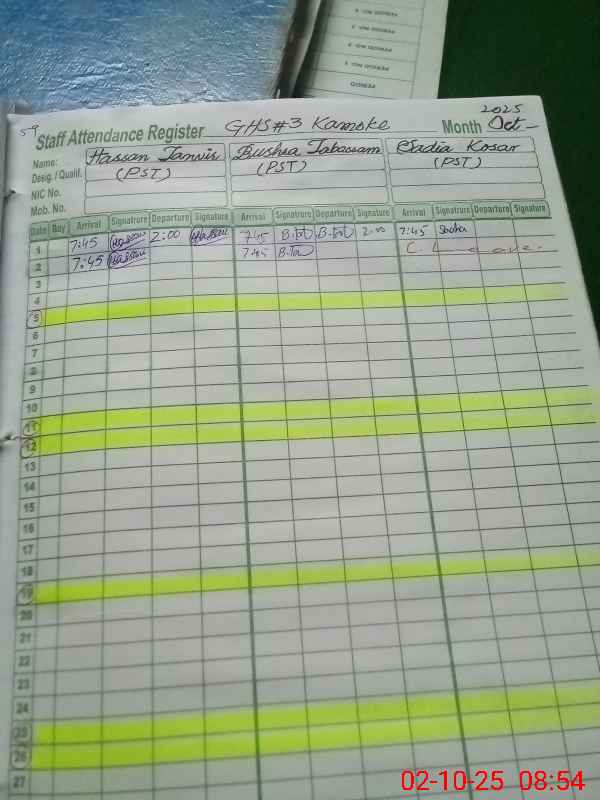 59
Staff Attendance Register GHS#3 Kamoke Month Oct- 2025
Name: Hassan Tanvir Bushra Tabassam Sadia Kosar
Desig. / Qualif. (PST) (PST) (PST)
NIC No.
Mob. No.
Date Day Arrival Signature Departure Signature Arrival Signature Departure Signature Arrival Signature Departure Signature
1 7:45 Hassan 2:00 Hassan 7:45 B.Tab B.Tab 2:00 7:45 Sadia
2 7:45 Hassan 7:45 B.Tab C. Leave.
3
4
5
6
7
8
9
10
11
12
13
14
15
16
17
18
19
20
21
22
23
24
25
26
27
02-10-25 08:54